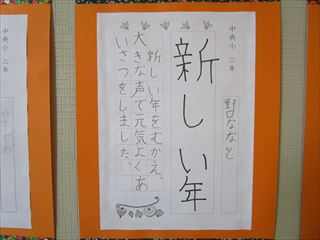 中央小 二年
新しい年
野口ななと
新しい年をむかえ、
大きな声で元気よくあ
いさつをしました。
中央小 二年